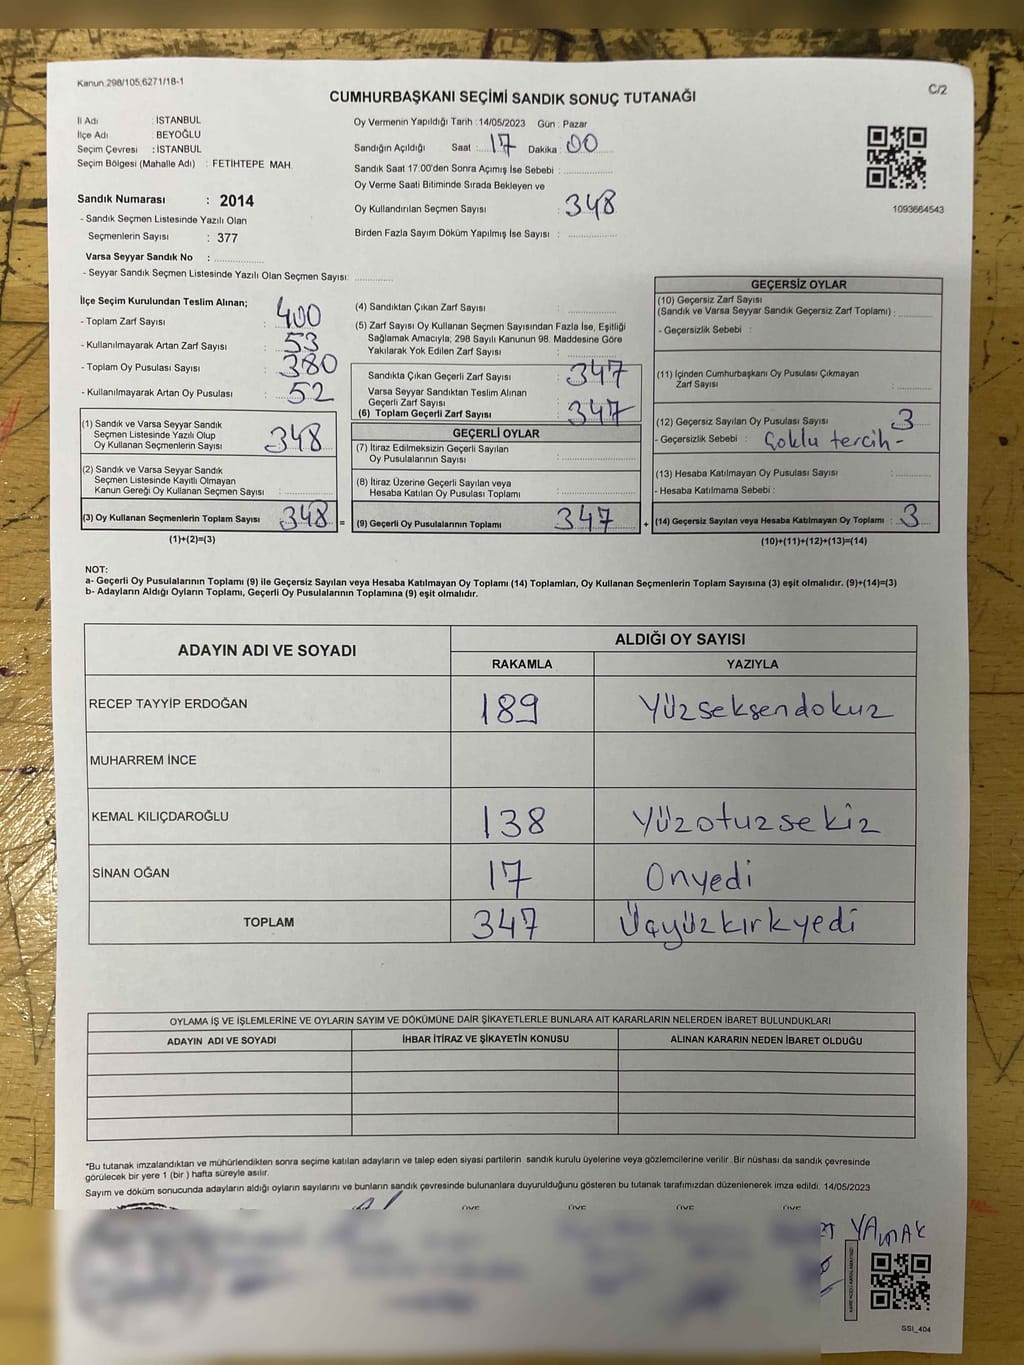 Kanun 298/105,6271/18-1
C/2
CUMHURBAŞKANI SEÇİMİ SANDIK SONUÇ TUTANAĞI
İl Adı : İSTANBUL
İlçe Adı : BEYOĞLU
Seçim Çevresi : İSTANBUL
Seçim Bölgesi (Mahalle Adı) : FETİHTEPE MAH.
Sandık Numarası : 2014
- Sandık Seçmen Listesinde Yazılı Olan
Seçmenlerin Sayısı : 377
Varsa Seyyar Sandık No :
- Seyyar Sandık Seçmen Listesinde Yazılı Olan Seçmen Sayısı:
Oy Vermenin Yapıldığı Tarih : 14/05/2023 Gün : Pazar
Sandığın Açıldığı Saat : 17 Dakika : 00
Sandık Saat 17:00'den Sonra Açımış İse Sebebi :
Oy Verme Saati Bitiminde Sırada Bekleyen ve
Oy Kullandırılan Seçmen Sayısı : 348
Birden Fazla Sayım Döküm Yapılmış İse Sayısı :
1093664543
İlçe Seçim Kurulundan Teslim Alınan;
- Toplam Zarf Sayısı : 400
- Kullanılmayarak Artan Zarf Sayısı : 53
- Toplam Oy Pusulası Sayısı : 380
- Kullanılmayarak Artan Oy Pusulası : 52
(1) Sandık ve Varsa Seyyar Sandık
Seçmen Listesinde Yazılı Olup
Oy Kullanan Seçmenlerin Sayısı : 348
(2) Sandık ve Varsa Seyyar Sandık
Seçmen Listesinde Kayıtlı Olmayan
Kanun Gereği Oy Kullanan Seçmen Sayısı :
(3) Oy Kullanan Seçmenlerin Toplam Sayısı : 348 =
(1)+(2)=(3)
(4) Sandıktan Çıkan Zarf Sayısı :
(5) Zarf Sayısı Oy Kullanan Seçmen Sayısından Fazla İse, Eşitliği
Sağlamak Amacıyla; 298 Sayılı Kanunun 98. Maddesine Göre
Yakılarak Yok Edilen Zarf Sayısı :
Sandıkta Çıkan Geçerli Zarf Sayısı : 347
Varsa Seyyar Sandıktan Teslim Alınan
Geçerli Zarf Sayısı :
(6) Toplam Geçerli Zarf Sayısı : 347
GEÇERLİ OYLAR
(7) İtiraz Edilmeksizin Geçerli Sayılan
Oy Pusulalarının Sayısı :
(8) İtiraz Üzerine Geçerli Sayılan veya
Hesaba Katılan Oy Pusulası Toplamı :
(9) Geçerli Oy Pusulalarının Toplamı : 347 +
GEÇERSİZ OYLAR
(10) Geçersiz Zarf Sayısı
(Sandık ve Varsa Seyyar Sandık Geçersiz Zarf Toplamı) :
- Geçersizlik Sebebi :
(11) İçinden Cumhurbaşkanı Oy Pusulası Çıkmayan
Zarf Sayısı :
(12) Geçersiz Sayılan Oy Pusulası Sayısı : 3
- Geçersizlik Sebebi : Çoklu tercih -
(13) Hesaba Katılmayan Oy Pusulası Sayısı :
- Hesaba Katılmama Sebebi :
(14) Geçersiz Sayılan veya Hesaba Katılmayan Oy Toplamı : 3
(10)+(11)+(12)+(13)=(14)
NOT:
a- Geçerli Oy Pusulalarının Toplamı (9) ile Geçersiz Sayılan veya Hesaba Katılmayan Oy Toplamı (14) Toplamları, Oy Kullanan Seçmenlerin Toplam Sayısına (3) eşit olmalıdır. (9)+(14)=(3)
b- Adayların Aldığı Oyların Toplamı, Geçerli Oy Pusulalarının Toplamına (9) eşit olmalıdır.
ADAYIN ADI VE SOYADI ALDIĞI OY SAYISI
RAKAMLA YAZIYLA
RECEP TAYYİP ERDOĞAN 189 Yüzseksendokuz
MUHARREM İNCE
KEMAL KILIÇDAROĞLU 138 Yüzotuzsekiz
SİNAN OĞAN 17 Onyedi
TOPLAM 347 Üçyüzkırkyedi
OYLAMA İŞ VE İŞLEMLERİNE VE OYLARIN SAYIM VE DÖKÜMÜNE DAİR ŞİKAYETLERLE BUNLARA AİT KARARLARIN NELERDEN İBARET BULUNDUKLARI
ADAYIN ADI VE SOYADI İHBAR İTİRAZ VE ŞİKAYETİN KONUSU ALINAN KARARIN NEDEN İBARET OLDUĞU
*Bu tutanak imzalandıktan ve mühürlendikten sonra seçime katılan adayların ve talep eden siyasi partilerin sandık kurulu üyelerine veya gözlemcilerine verilir. Bir nüshası da sandık çevresinde
görülecek bir yere 1 (bir) hafta süreyle asılır.
Sayım ve döküm sonucunda adayların aldığı oyların sayılarını ve bunların sandık çevresinde bulunanlara duyurulduğunu gösteren bu tutanak tarafımızdan düzenlenerek imza edildi. 14/05/2023
ÜYE ÜYE ÜYE ÜYE
YAMAK
SSI_404